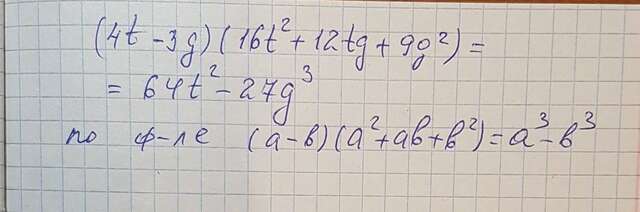 (4t - 3g)(16t² + 12tg + 9g²) =
= 64t² - 27g³
по ф-ле (а-в)(а²+ав+в²)=а³-в³